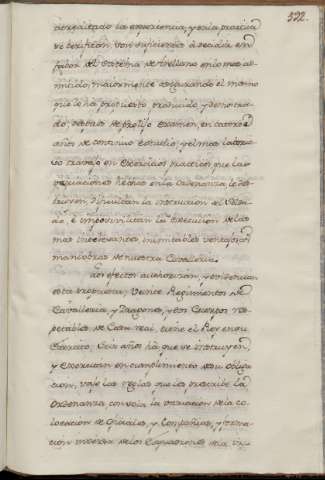 592.
acreditado la experiencia, y esta practica
se verifican, son suficientes à decidir en
favor del Sistema de Arellano en lo mas ad-
mitido, maiormente asegurando el mismo
que lo ha propuesto, producido, y demostra-
do, despues de prolijo examen, en catorce
años de continuo estudio, y el mas laborio-
so travajo en exercicios practicos que las
variaciones hechas en la Ordenanza le des-
truien, dificultan la instruccion del Solda-
do, è imposivilitan la execucion de las
mas interesantes inimitables ventajosas
maniobras de nuestra Cavalleria.
Los efectos authorizan, y evidencian
esta propuesta; Veinte Regimientos de
Cavalleria, y Dragones, y dos Cuerpos res-
petables de Casa real, tiene el Rey en su
Exercito; Seis años hà que se instruyen,
y exercitan en cumplimiento de su obliga-
cion, vajo las reglas que les prescribe la
Ordenanza, con sola la variacion de la co-
locacion de Oficiales, y Compañias, y forma-
cion inversa de los Esquadrones de la